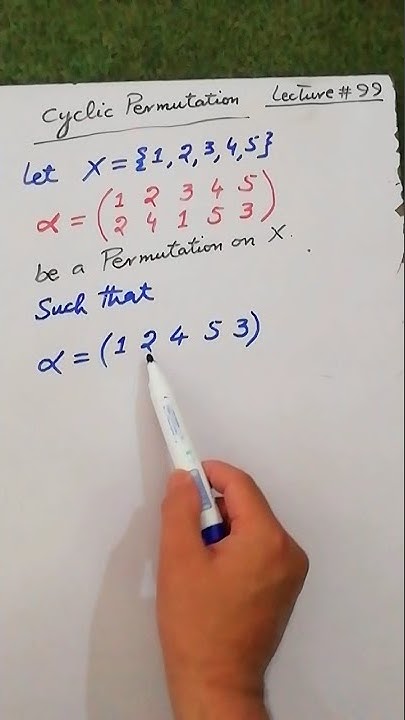 Cyclic Permutation Lecture # 99
Let X = {1, 2, 3, 4, 5}
α = (1 2 3 4 5
2 4 1 5 3)
be a Permutation on X.
Such that
α = (1 2 4 5 3)